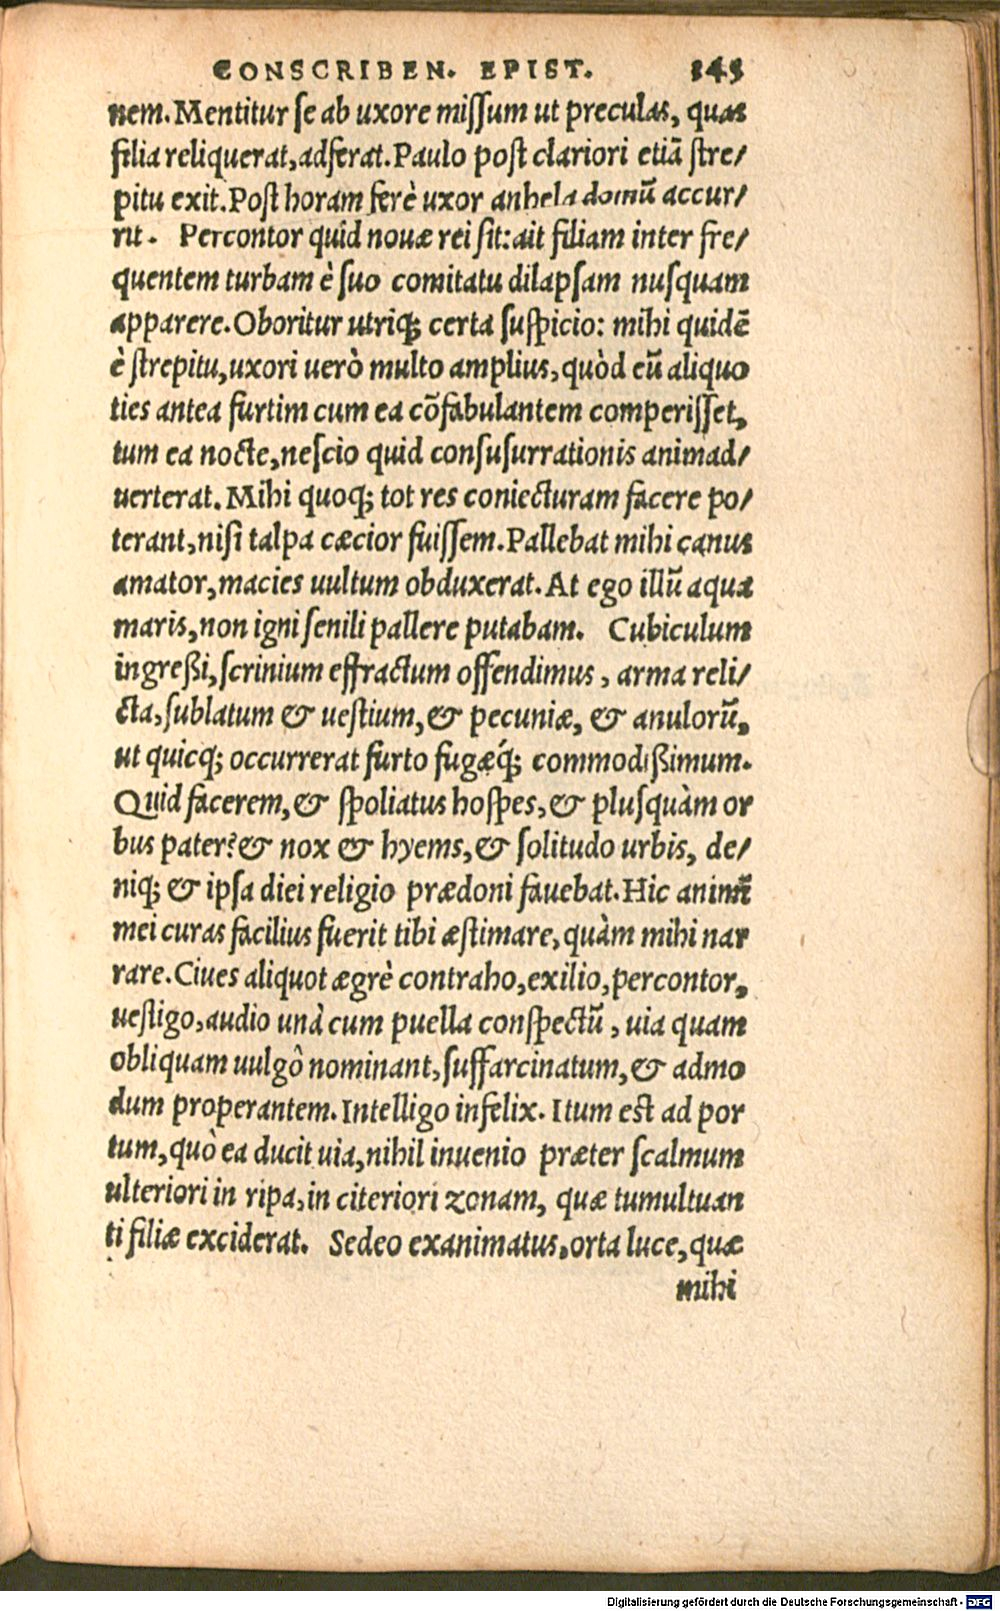 CONSCRIBEN. EPIST. 345
nem. Mentitur se ab uxore missum ut preculas, quas
filia reliquerat, adferat. Paulo post clariori etiã stre/
pitu exit. Post horam ferè uxor anhela domũ accur/
rit. Percontor quid nouæ rei sit: ait filiam inter fre/
quentem turbam è suo comitatu dilapsam nusquam
apparere. Oboritur utriq; certa suspicio: mihi quidẽ
è strepitu, uxori uerò multo amplius, quòd eũ aliquo
ties antea furtim cum ea cõfabulantem comperisset,
tum ea nocte, nescio quid consusurrationis animad/
uerterat. Mihi quoq; tot res coniecturam facere po/
terant, nisi talpa cæcior fuissem. Pallebat mihi canus
amator, macies uultum obduxerat. At ego illũ aqua
maris, non igni senili pallere putabam. Cubiculum
ingreßi, scrinium effractum offendimus, arma reli/
cta, sublatum & uestium, & pecuniæ, & anulorũ,
ut quicq; occurrerat furto fugæq́; commodißimum.
Quid facerem, & spoliatus hospes, & plusquàm or
bus pater? & nox & hyems, & solitudo urbis, de/
niq; & ipsa diei religio prædoni fauebat. Hic animũ
mei curas facilius fuerit tibi æstimare, quàm mihi nar
rare. Ciues aliquot ægrè contraho, exilio, percontor,
uestigo, audio unà cum puella conspectũ, uia quam
obliquam uulgô nominant, suffarcinatum, & admo
dum properantem. Intelligo infelix. Itum est ad por
tum, quò ea ducit uia, nihil inuenio præter scalmum
ulteriori in ripa, in citeriori zonam, quæ tumultuan
ti filiæ exciderat. Sedeo exanimatus, orta luce, quæ
mihi
Digitalisierung gefördert durch die Deutsche Forschungsgemeinschaft - DFG